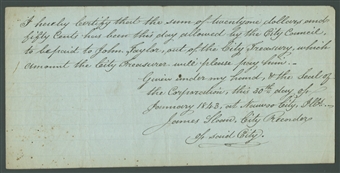 I hereby Certify that the sum of twentyone dollars and
fifty Cents has been this day allowed by the City Council,
to be paid to John Taylor, out of the City Treasury, which
amount the City Treasurer will please pay him.
Given under my hand, & the Seal of
the Corporation, this 30th day of
January 1843, at Nauvoo City, Ills.
James Sloan, City Recorder
of said City.